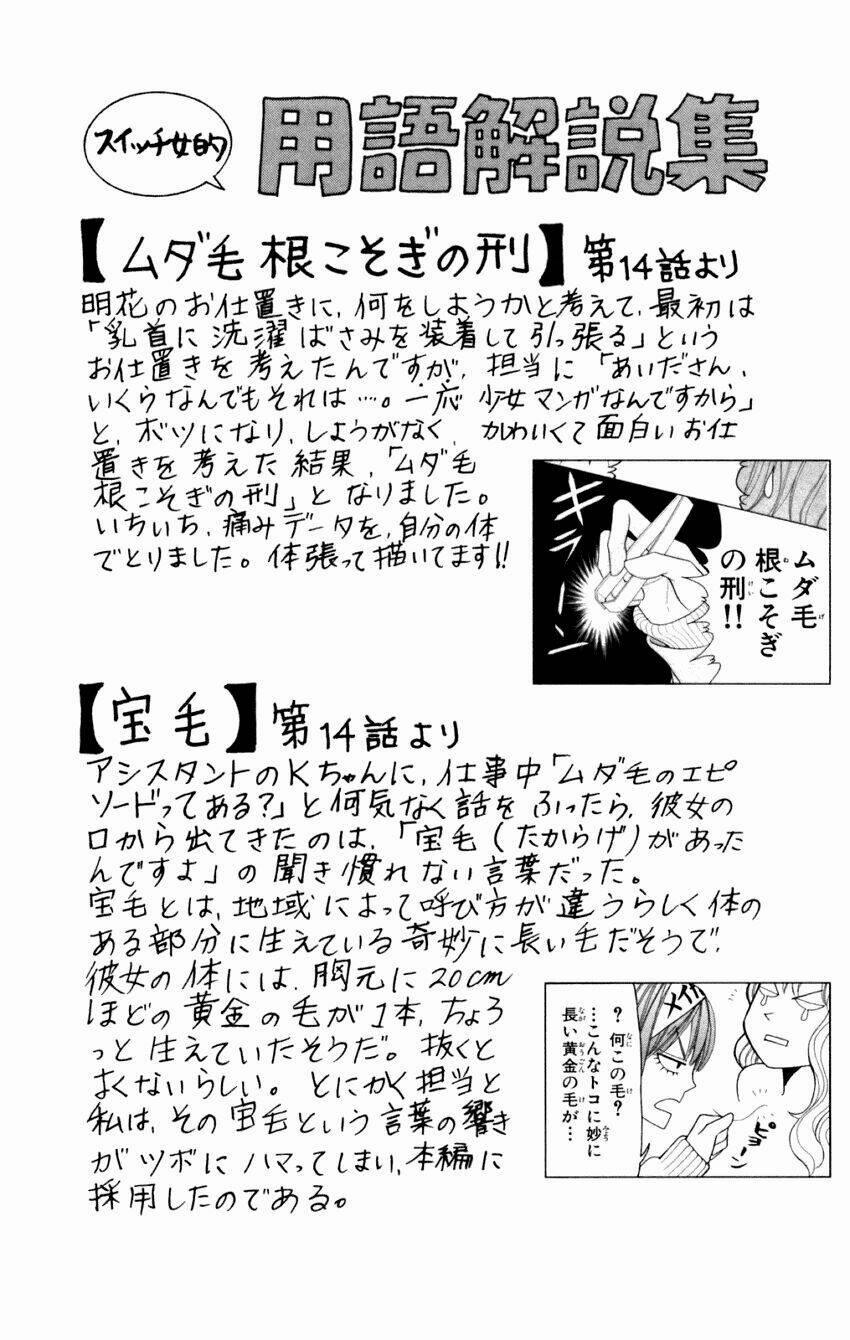 スイッチ女的
用語解説集
【ムダ毛根こそぎの刑】第14話より
明花のお仕置きに、何をしようかと考えて、最初は
「乳首に洗濯ばさみを装着して引っ張る」という
お仕置きを考えたんですが、担当に「あいださん、
いくらなんでもそれは…。一応少女マンガなんですから」
と、ボツになり、しょうがなく、かわいくて面白いお仕
置きを考えた結果、「ムダ毛
根こそぎの刑」となりました。
いちいち、痛みデータを、自分の体
でとりました。体張って描いてます!!
ムダ毛
根こそぎ
の刑!!
【宝毛】第14話より
アシスタントのKちゃんに、仕事中「ムダ毛のエピ
ソードってある?」と何気なく話をふったら、彼女の
口から出てきたのは、「宝毛(たからげ)があった
んですよ」の聞き慣れない言葉だった。
宝毛とは、地域によって呼び方が違うらしく体の
ある部分に生えている奇妙に長い毛だそうで、
彼女の体には、胸元に20cm
ほどの黄金の毛が1本、ちょろ
っと生えていたそうだ。抜くと
よくないらしい。とにかく担当と
私は、その宝毛という言葉の響き
がツボにハマってしまい、本編に
採用したのである。
?何この毛?
…こんなトコに妙に
長い黄金の毛が…
メイカ
ピョーン